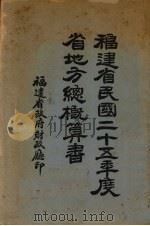 福建省民國二十五年度
省地方總概算書
福建省政府財政廳印
www.youmook.com